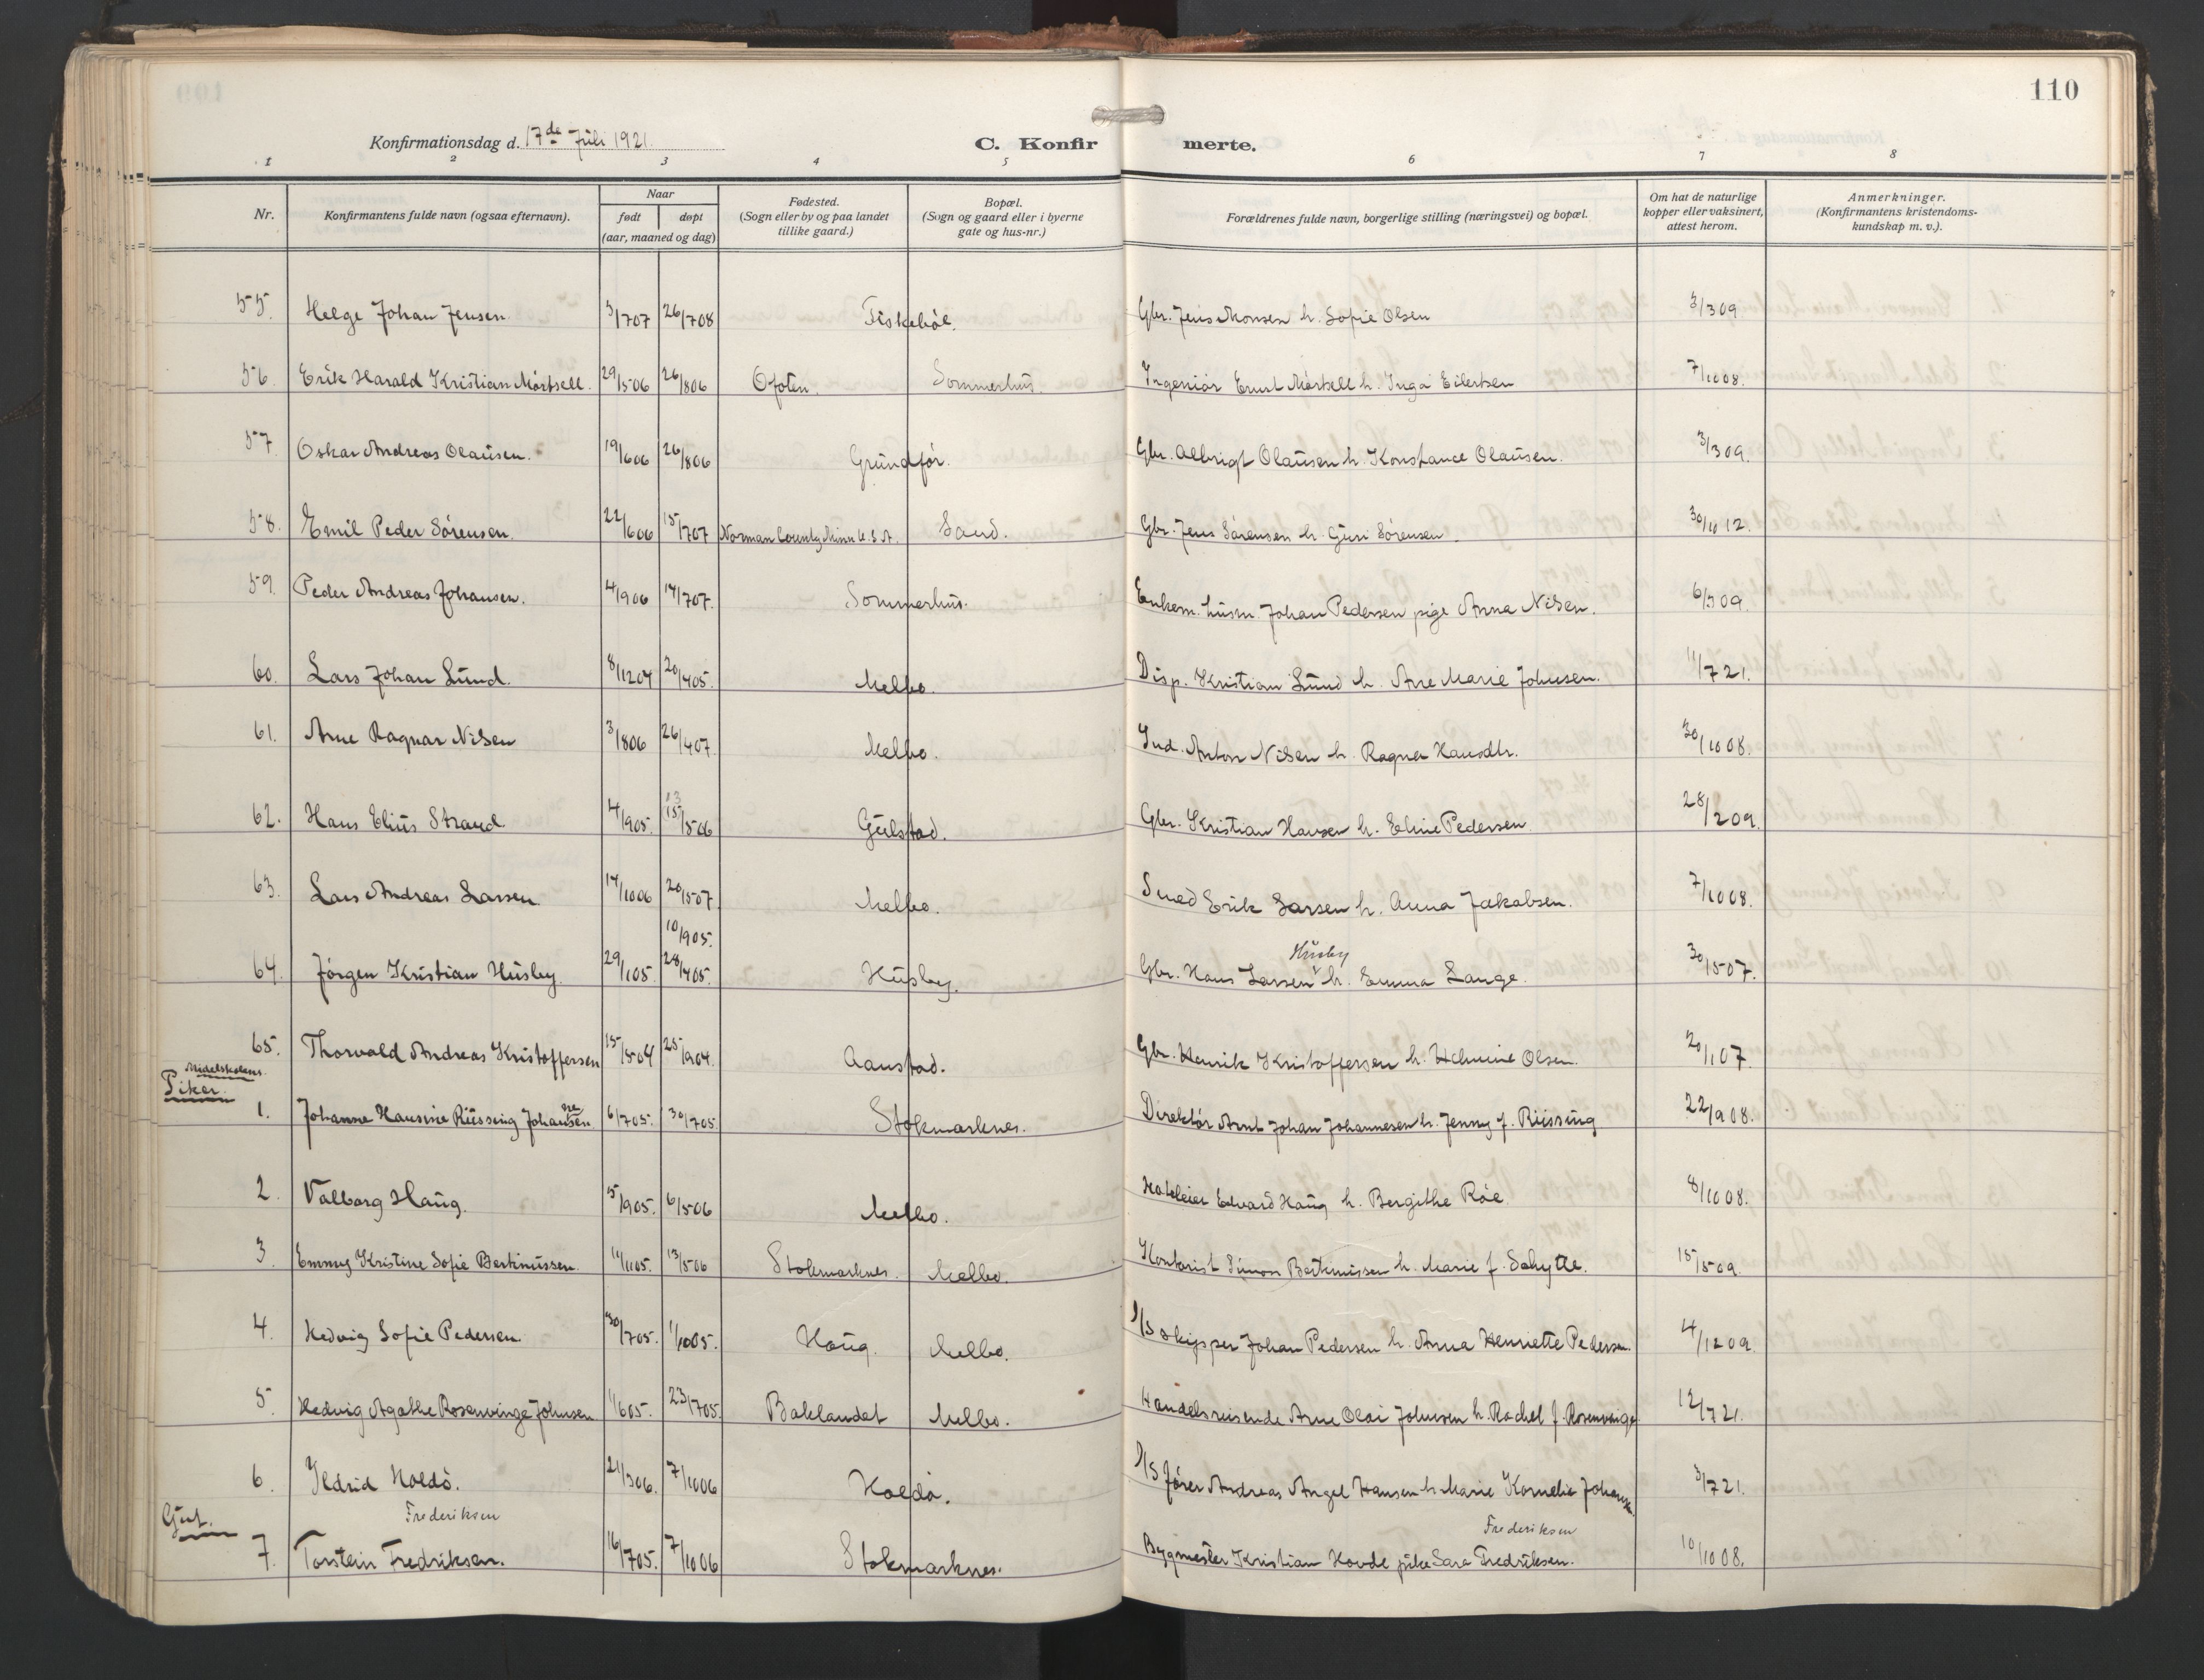 110
Konfirmationsdag d. 17de Juli 1921.
C. Konfirmerte.
1 2 3 4 5 6 7 8
Nr. Konfirmantens fulde navn (ogsaa efternavn). Naar født døpt (aar, maaned og dag) Fødested. (Sogn eller by og paa landet tillike gaard.) Bopæl. (Sogn og gaard eller i byerne gate og hus-nr.) Forældrenes fulde navn, borgerlige stilling (næringsvei) og bopæl. Om hat de naturlige kopper eller vaksinert, attest herom. Anmerkninger. (Konfirmantens kristendomskundskap m. v.).
55. Helge Johan Jensen. 3/707 26/708 Fiskeböl. Gbr. Jens Monsen h. Sofie Olsen 3/309
56. Erik Harald Kristian Mörtsell. 29/506 26/806 Ofoten. Sommerhus. Ingeniör Ernst Mörtsell h. Inga Eilertsen 7/1008.
57 Oskar Andreas Olausen. 19/606 26/806 Grundför. Gbr. Albrigt Olausen h. Konstance Olausen. 3/309.
58. Emil Peder Sörensen. 22/606 15/707 Norman County Minn U.S.A. Sand. Gbr. Jens Sörensen h. Guri Sörensen. 30/1012.
59. Peder Andreas Johansen. 4/906 14/707. Sommerhus. Enkem. husm. Johan Pedersen pige Anna Nilsen. 6/309.
60. Lars Johan Lund. 8/1204 20/405. Melbo. Disp. Kristian Lund h. Ane Marie Johnsen. 11/721.
61. Arne Ragnar Nilsen 3/806 26/407. Melbo. Ind. Anton Nilsen h. Ragna Hansdtr. 30/1008.
62. Hans Elius Strand. 4/905. 13 15/506 Gulstad. Gbr. Kristian Hansen h. Eline Pedersen 28/209.
63. Lars Andreas Larsen. 14/1006 20/507 Melbo. Smed Erik Larsen h. Anna Jakobsen. 7/1008.
10/905.
64. Jörgen Kristian Husby. 29/105 28/405. Husby. Gbr. Hans Larsen Husby h. Emma Lange. 30/507.
65. Thorvald Andreas Kristoffersen 15/504 25/904. Aanstad. Gbr. Henrik Kristoffersen h. Helmine Olsen. 20/107.
Midelskolens
Piker.
1. Johanne Hansine Rüssing Johannesen 6/705. 30/705. Stokmarknes. Direktör Arnt Johan Johannesen h. Jenny f. Rüssing 22/908.
2. Valborg Haug. 5/905. 6/506 Melbo. Hoteleier Edvard Haug h. Bergithe Röe. 8/1008.
3. Emmy Kristine Sofie Bertinussen. 11/1105. 13/506 Stokmarknes. Melbo. Kontorist Simon Bertinussen h. Marie f. Schytte. 15/509.
4. Hedvig Sofie Pedersen. 30/705. 1/1005. Haug. Melbo. D/S skipper Johan Pedersen h. Anna Henriette Pedersen. 4/1209.
5. Hedvig Agathe Rosenvinge Johnsen 1/605. 23/705. Baklandet Melbo. Handelsreisende Arne Olai Johnsen h. Rachel f. Rosenvinge 12/721.
6. Ildrid Holdö. 21/306. 7/1006 Holdö. D/S förer Andreas Angel Hansen h. Marie Kornelie Johansen. 3/721.
Gut.
Frederiksen Frederiksen
7. Torstein Fredriksen. 16/705. 7/1006 Stokmarknes. Bygmester Kristian Hovde pike Sara Fredriksen. 10/1008.